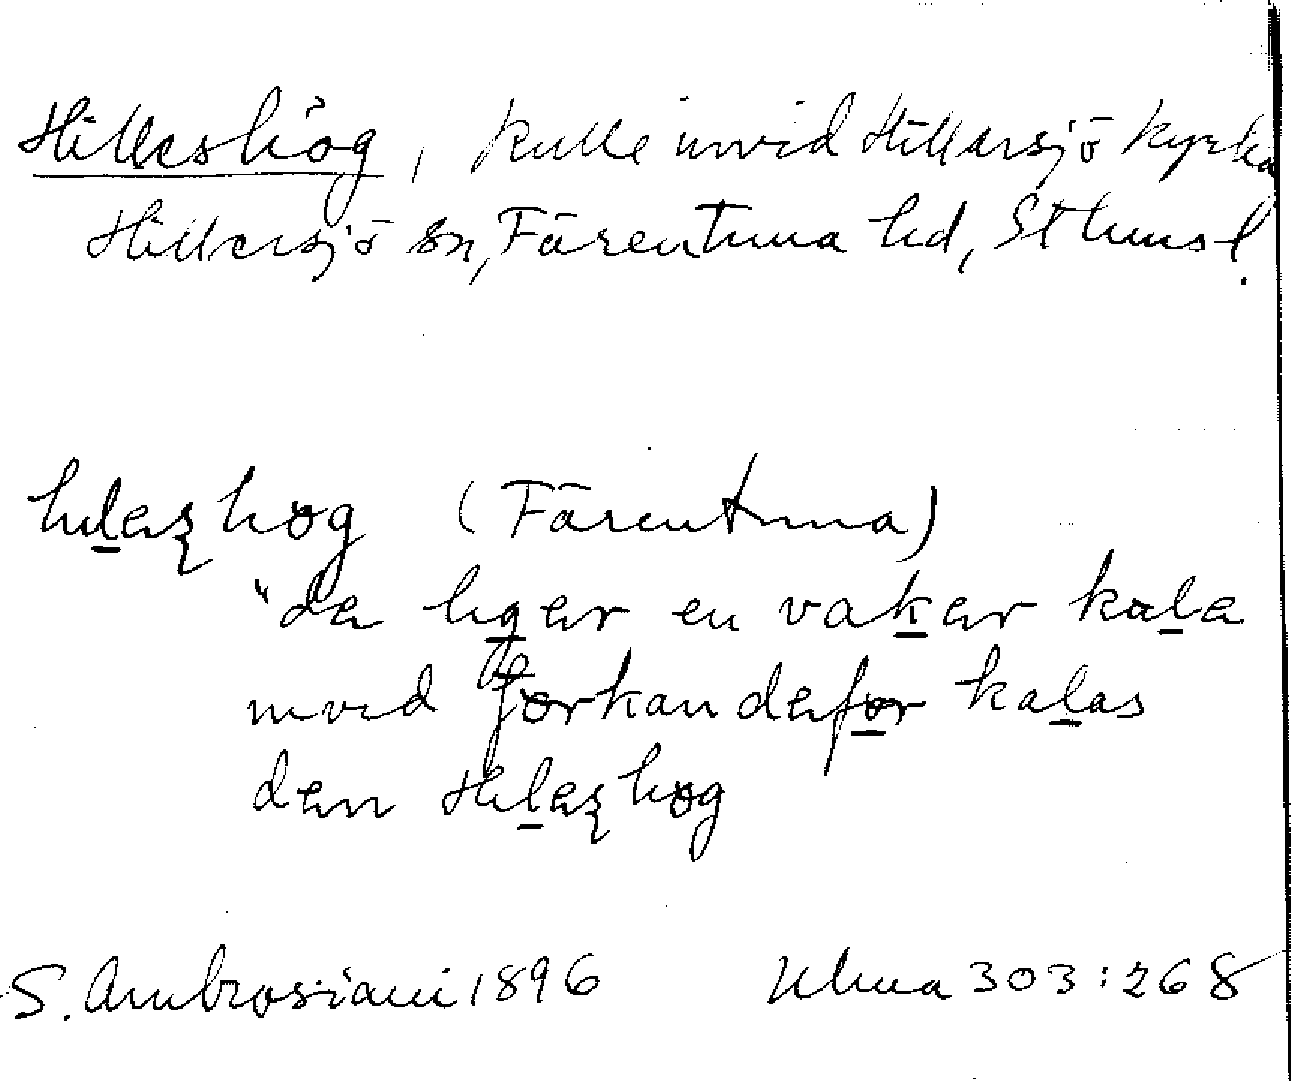 Hilleshög, kulle invid Hillersjö kyrka
Hillersjö sn, Färentuna hd, Sthms l.
hıl̲ezhøg (Färentuna)
"de lıg̲er en vak̲er kal̲e
ınvıd çørkan deføṟ kal̲as
den Hıl̲ezhøg
S. Ambrosiani 1896 Ulma 303:268